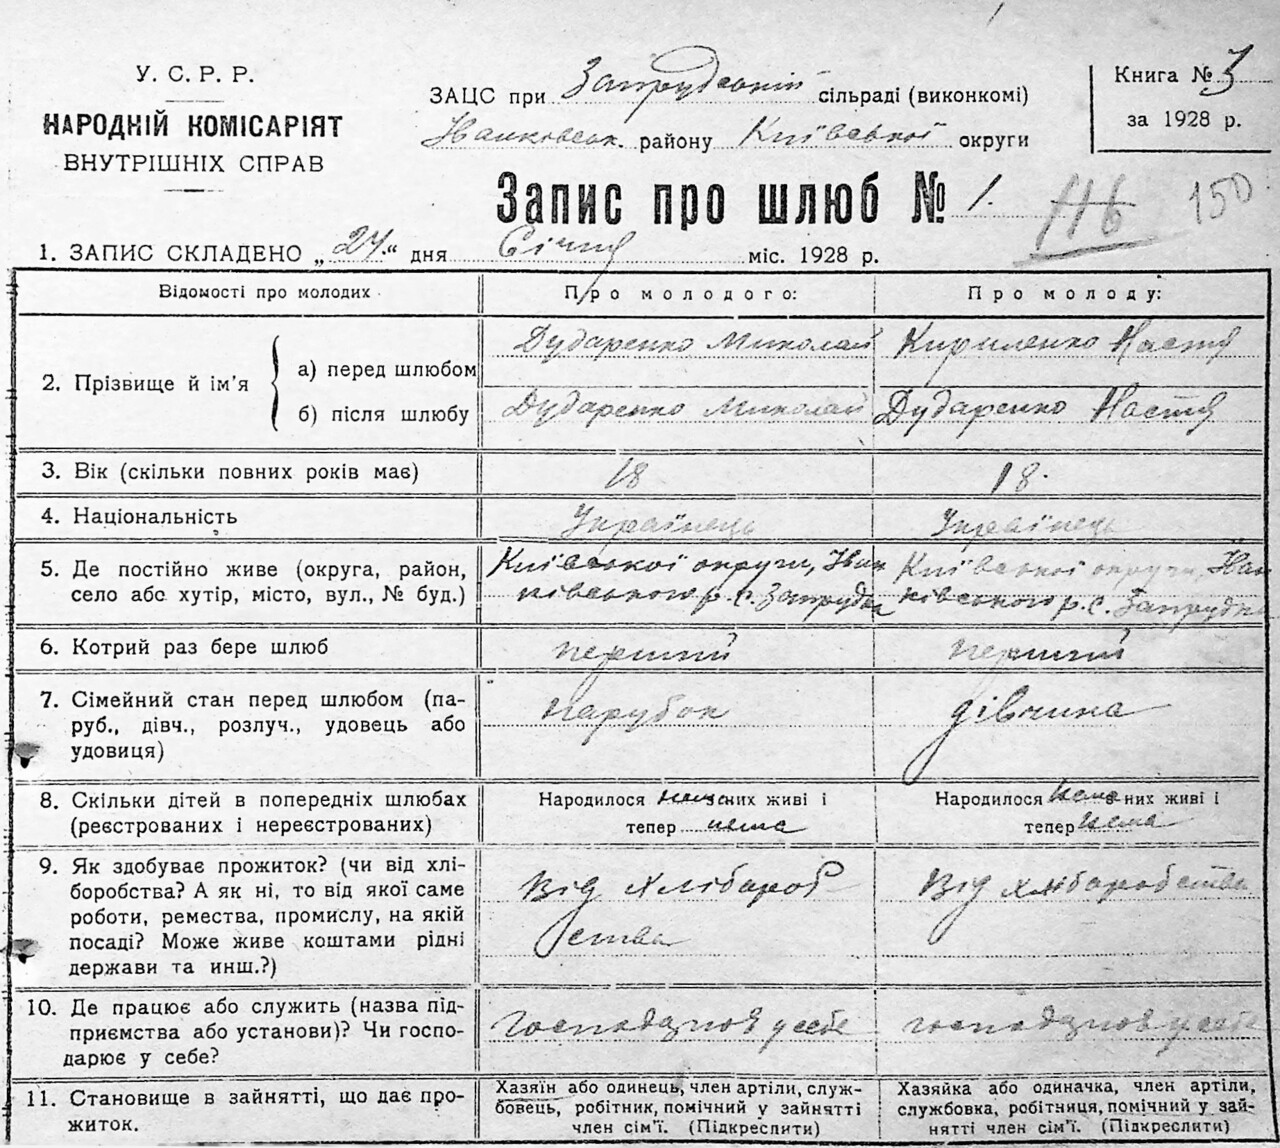 У. С. Р. Р.
НАРОДНІЙ КОМІСАРІЯТ
ВНУТРІШНІХ СПРАВ
ЗАЦС при Запрудській сільраді (виконкомі)
Іванковськ. району Київської округи
Книга № 3
за 1928 р.
Запис про шлюб № 1.
116 150
1. ЗАПИС СКЛАДЕНО „24“ дня Січня міс. 1928 р.
Відомості про молодих
Про молодого:
Про молоду:
2. Прізвище й ім’я
а) перед шлюбом
Дударенко Миколай
Кириленко Настя
б) після шлюбу
Дударенко Миколай
Дударенко Настя
3. Вік (скільки повних років має)
18
18.
4. Національність
Українець
Українець
5. Де постійно живе (округа, район,
село або хутір, місто, вул., № буд.)
Київської округи, Іван
ківського р. с. Запрудка
Київської округи, Іван
ківського р. с. Запрудка
6. Котрий раз бере шлюб
перший
перший
7. Сімейний стан перед шлюбом (па-
руб., дівч., розлуч., удовець або
удовиця)
парубок
дівчина
8. Скільки дітей в попередніх шлюбах
(реєстрованих і нереєстрованих)
Народилося нема з них живі і
тепер нема
Народилося нема з них живі і
тепер нема
9. Як здобуває прожиток? (чи від хлі-
боробства? А як ні, то від якої саме
роботи, ремества, промислу, на якій
посаді? Може живе коштами рідні
держави та инш.?)
Від хлібороб
ства
Від хліборобства
10. Де працює або служить (назва під-
приємства або установи)? Чи госпо-
дарює у себе?
у себе
у себе
11. Становище в зайнятті, що дає про-
житок.
Хазяїн або одинець, член артіли, служ-
бовець, робітник, помічний у зайнятті
член сім’ї. (Підкреслити)
Хазяйка або одиначка, член артіли,
службовка, робітниця, помічний у зай-
нятті член сім’ї. (Підкреслити)